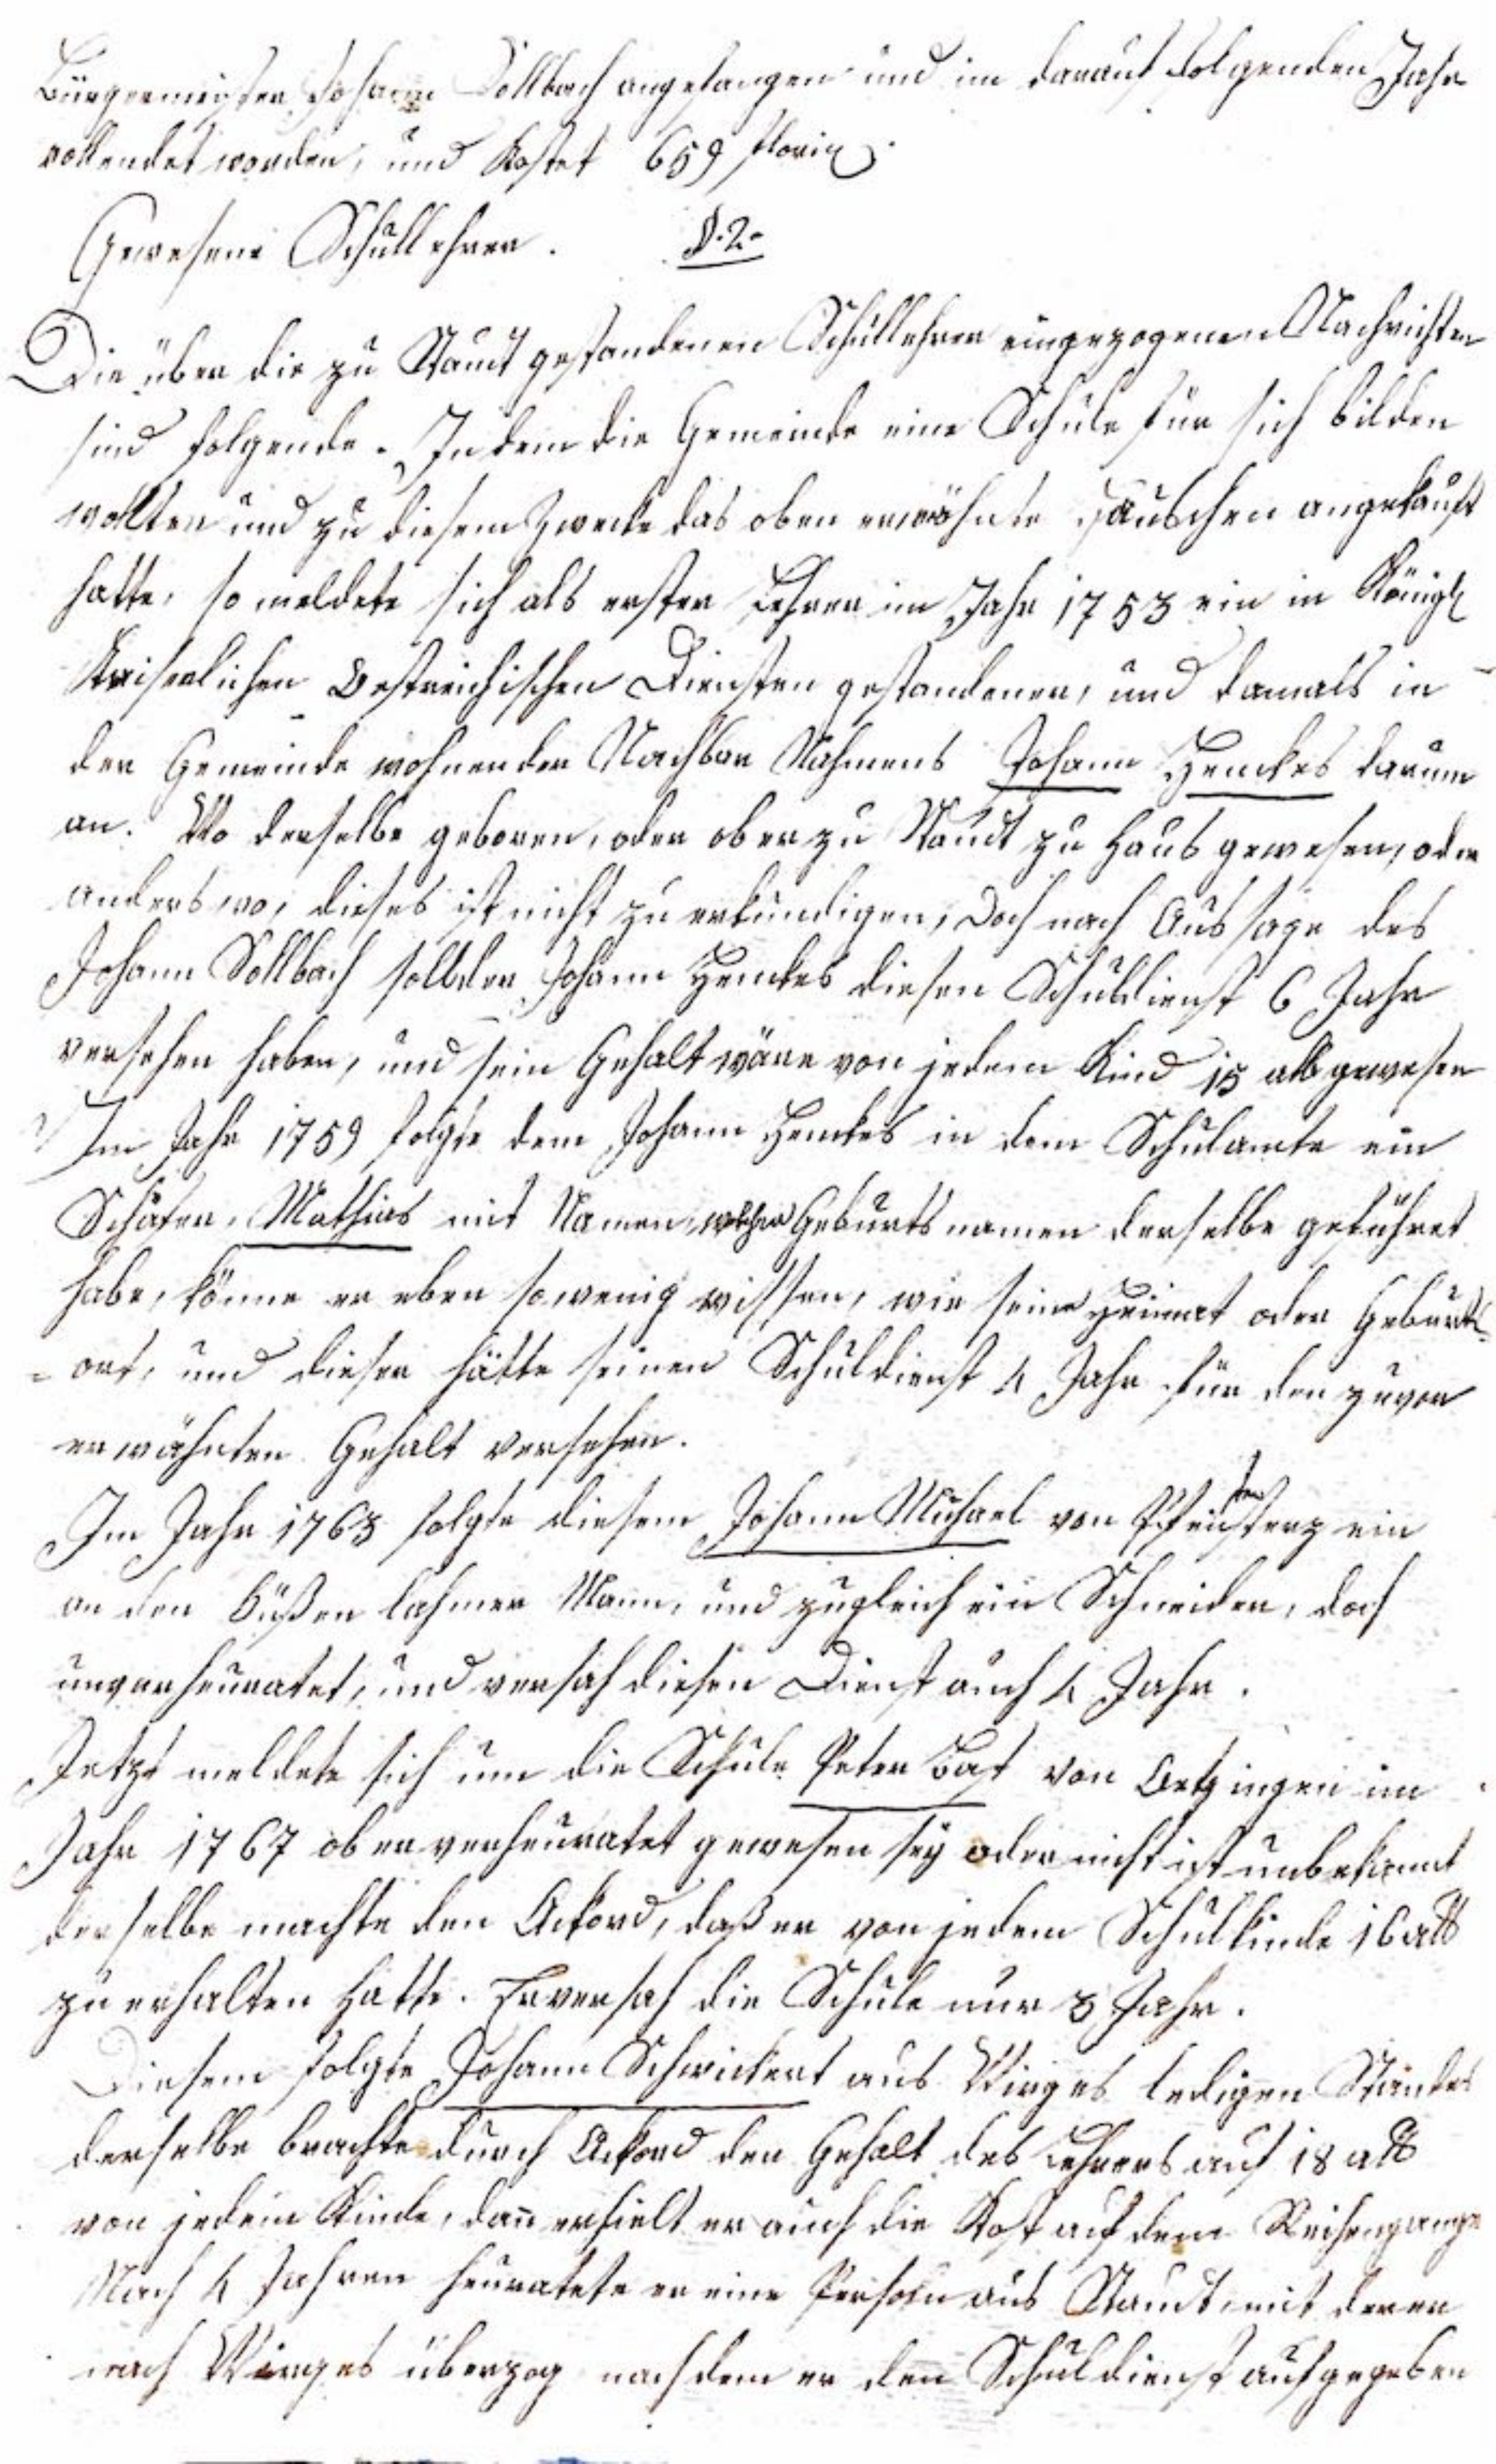 Bürgermeister Johann Söllbach angefangen und im darauf folgenden Jahr
vollendet worden, und kostet 659 florin.
Gewesene Schullehrer. §.2.
Die über die zu Staudt gestandenen Schullehrer eingezogenen Nachrichten
sind folgende. Indem die Gemeinde eine Schule für sich bilden
wollten und zu diesem Zwecke das oben erwähnte Häuschen angekauft
hatte, so meldete sich als erster Lehrer im Jahr 1753 ein in Königl
Kaiserlichen Oestreichischen Diensten gestandener, und damals in
der Gemeinde wohnender Nachbar Nahmens Johann Henckes darum
an. Wo derselbe geboren, oder ob er zu Staudt zu Haus gewesen, oder
anderswo, dieses ist nicht zu erkundigen, doch nach Aussage des
Johann Söllbach soll der Johann Henckes diesen Schuldienst 6 Jahr
versehen haben, und sein Gehalt wäre von jedem Kind 15 alb gewesen
Im Jahr 1759 folgte dem Johann Henckes in dem Schulamte ein
Schäfer, Mathias mit Namen, welchen Geburtsnamen derselbe geführet
habe, könne er eben so wenig wissen, wie seine Heimat oder Geburts-
=ort, und dieser hätte seinen Schuldienst 4 Jahr für den zuvor
erwähnten Gehalt versehen.
Im Jahr 1763 folgte diesem Johann Michael von ein
an den Füßen lahmer Mann, und zugleich ein Schneider, doch
unverheuratet, und versah diesen Dienst auch 4 Jahr.
Jetzt meldete sich um die Schule Peter Bast von Oetzingen im
Jahr 1767 ob er verheuratet gewesen sey oder nicht ist unbekannt
derselbe machte den Ackord, daß er von jedem Schulkinde 16 alb
zu erhalten hatte. Er versah die Schule nur 3 Jahr.
Diesem folgte Johann Schwickert aus Wirges ledigen Standes
derselbe brachte durch Ackord den Gehalt des Lehrers auf 18 alb
von jedem Kinde, dañ erhielt er auch die Kost auf dem Reihengange
Nach 4 Jahren heuratete er eine Person aus Staudt, mit der er
nach Wirges überzog nachdem er den Schuldienst aufgegeben